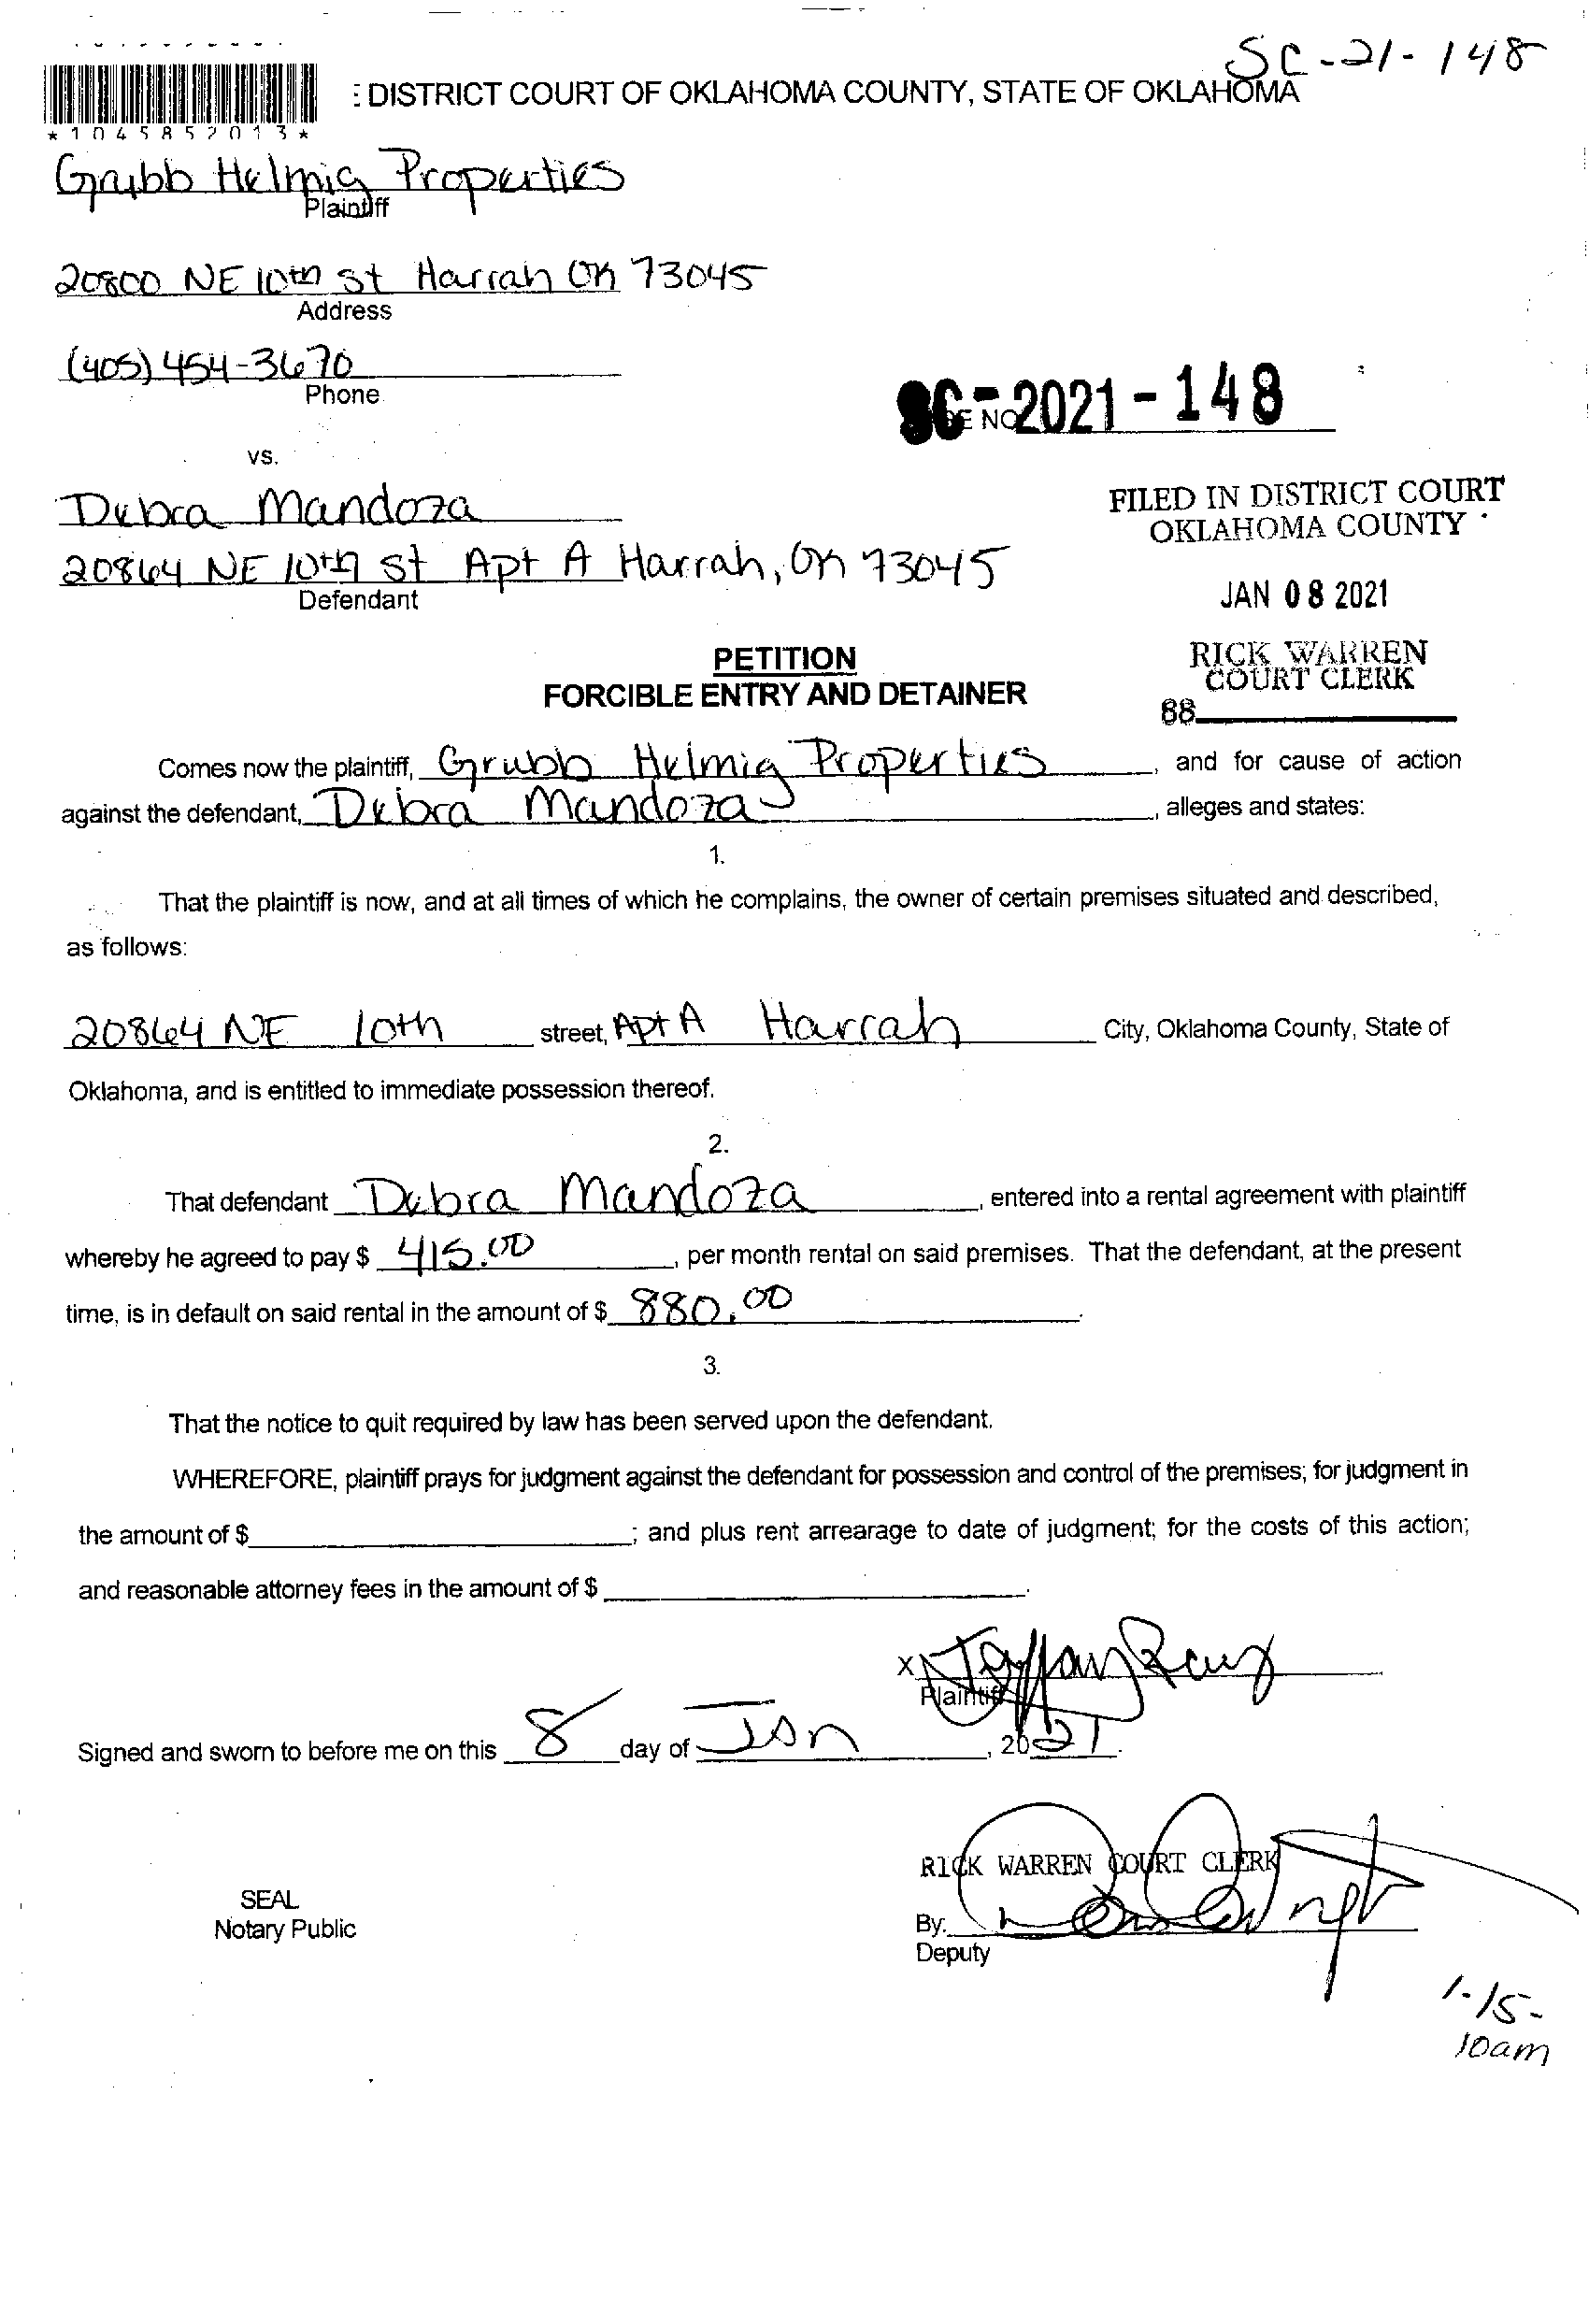 SC-21-148
: DISTRICT COURT OF OKLAHOMA COUNTY, STATE OF OKLAHOMA
*1045852013*
Grubb Helmig Properties
Plaintiff
20800 NE 10th St Harrah OK 73045
Address
(405) 454-3670
Phone
SC-2021-148
E NO
vs.
Debra Mandoza
20864 NE 10th St Apt A Harrah, OK 73045
Defendant
FILED IN DISTRICT COURT
OKLAHOMA COUNTY
JAN 08 2021
RICK WARREN
COURT CLERK
88
PETITION
FORCIBLE ENTRY AND DETAINER
Comes now the plaintiff, Grubb Helmig Properties, and for cause of action
against the defendant, Debra Mandoza, alleges and states:
1.
That the plaintiff is now, and at all times of which he complains, the owner of certain premises situated and described,
as follows:
20864 NE 10th street, Apt A Harrah City, Oklahoma County, State of
Oklahoma, and is entitled to immediate possession thereof.
2.
That defendant Debra Mandoza, entered into a rental agreement with plaintiff
whereby he agreed to pay $ 415.00, per month rental on said premises. That the defendant, at the present
time, is in default on said rental in the amount of $ 880.00.
3.
That the notice to quit required by law has been served upon the defendant.
WHEREFORE, plaintiff prays for judgment against the defendant for possession and control of the premises; for judgment in
the amount of $; and plus rent arrearage to date of judgment; for the costs of this action;
and reasonable attorney fees in the amount of $.
X
Plaintiff
Signed and sworn to before me on this 8 day of Jan, 2021.
RICK WARREN COURT CLERK
SEAL
Notary Public
By:
Deputy
1-15-
10am